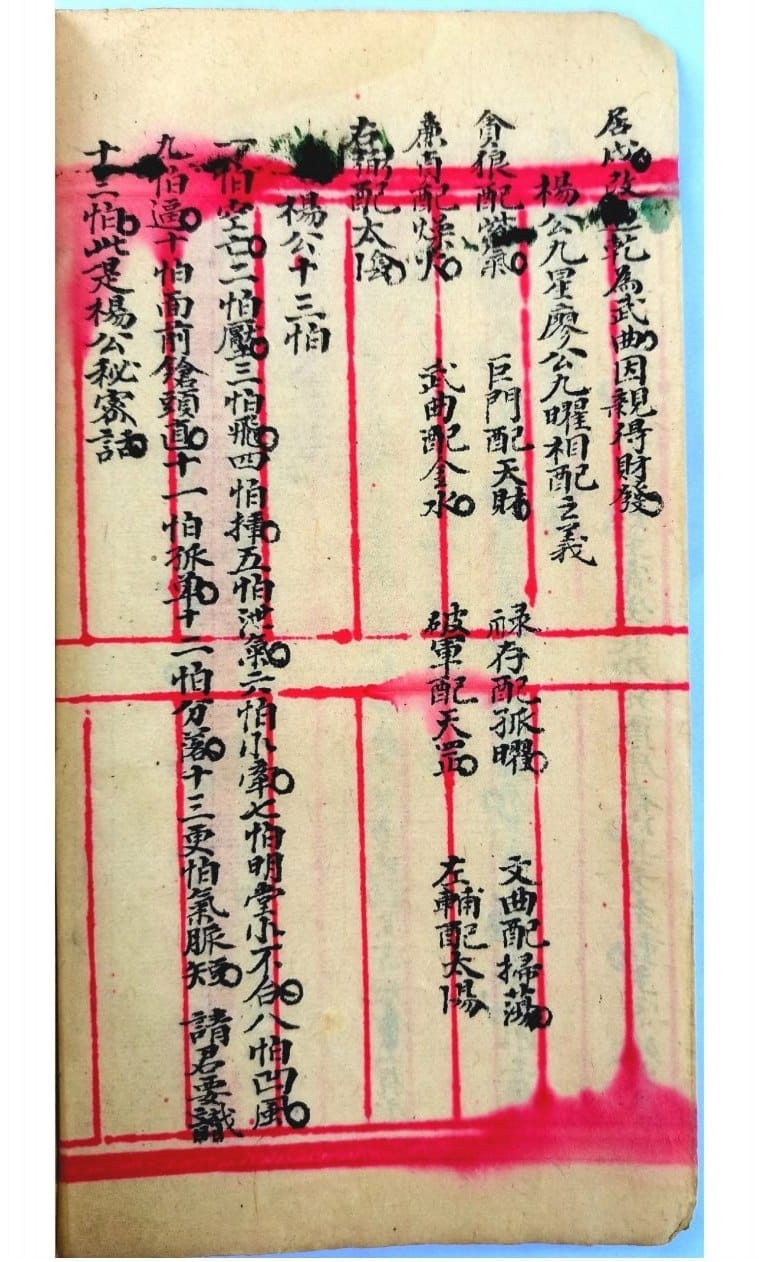 居戌改 乾為武曲因親得財發
楊公九星廖公九曜相配之義
貪狼配紫氣 巨門配天財 祿存配孤曜 文曲配掃蕩
廉貞配燥火 武曲配金水 破軍配天罡 左輔配太陽
右弼配太陰
楊公十三怕
一怕空亡二怕壓三怕飛四怕 五怕泄氣六怕水 七怕明堂水不合八怕凹風
九怕逼十怕面前鎗頭直十一怕孤單十二怕分落十三更怕氣脈短 請君要識
十三怕此是楊公秘密話